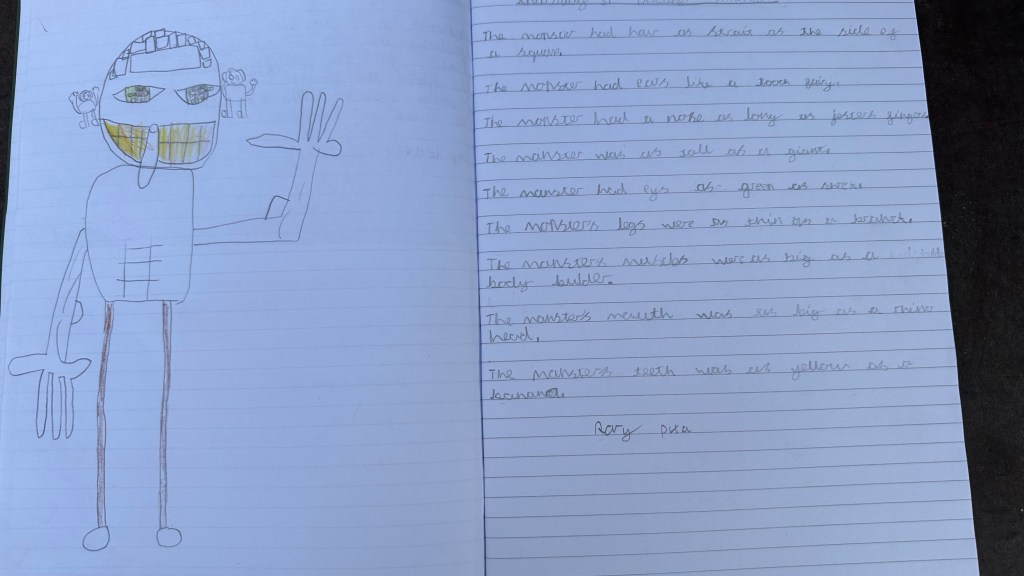 The monster had hair as strait as the side of
a square.
The monster had ears like a
The monster had a nose as long as fingers
The monster was as tall as a giant.
The monster had eys as green as
The monsters legs were as thin as a branch.
The monsters muscles were as big as a
body builder.
The monsters mouth was as big as a rhino
head,
The monsters teeth was as yellow as a
banana.
Rory